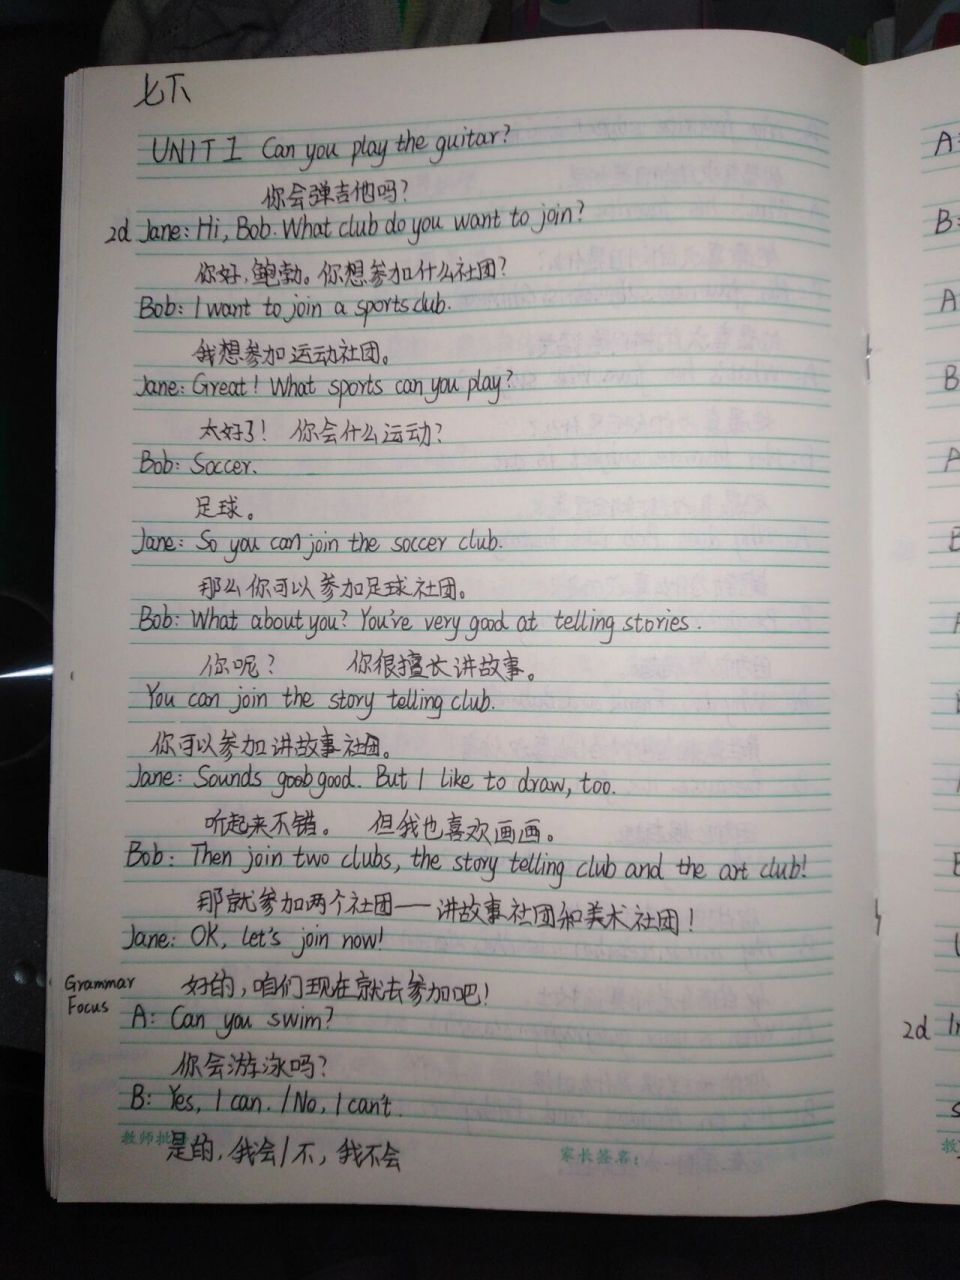 七下
UNIT 1 Can you play the guitar?
你会弹吉他吗?
2d Jane: Hi, Bob. What club do you want to join?
你好,鲍勃。你想参加什么社团?
Bob: I want to join a sports club.
我想参加运动社团。
Jane: Great! What sports can you play?
太好了! 你会什么运动?
Bob: Soccer.
足球。
Jane: So you can join the soccer club.
那么你可以参加足球社团。
Bob: What about you? You're very good at telling stories.
你呢? 你很擅长讲故事。
You can join the story telling club.
你可以参加讲故事社团。
Jane: Sounds good. But I like to draw, too.
听起来不错。 但我也喜欢画画。
Bob: Then join two clubs, the story telling club and the art club!
那就参加两个社团——讲故事社团和美术社团!
Jane: OK, let's join now!
Grammar Focus
好的,咱们现在就去参加吧!
A: Can you swim?
你会游泳吗?
B: Yes, I can. / No, I can't.
教师批
是的,我会/不,我不会
家长签名:
A:
B:
A
B
A
B
2d In
s